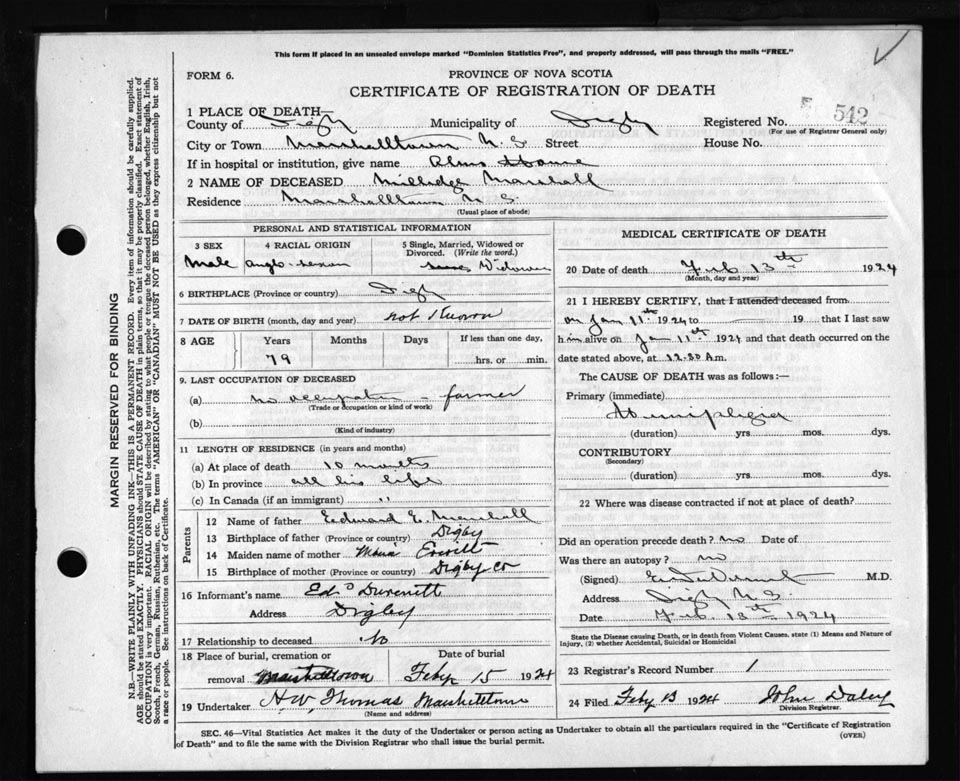 This form if placed in an unsealed envelope marked "Dominion Statistics Free", and properly addressed, will pass through the mails "FREE."
FORM 6.
PROVINCE OF NOVA SCOTIA
CERTIFICATE OF REGISTRATION OF DEATH
1 PLACE OF DEATH
County of Digby Municipality of Digby Registered No. 542
(For use of Registrar General only)
City or Town Marshalltown N. S. Street House No.
If in hospital or institution, give name Alms House
2 NAME OF DECEASED Milledge Marshall
Residence Marshalltown N S.
(Usual place of abode)
PERSONAL AND STATISTICAL INFORMATION
3 SEX
Male
4 RACIAL ORIGIN
Anglo-Saxon
5 Single, Married, Widowed or Divorced. (Write the word.)
Widower
6 BIRTHPLACE (Province or country) Digby
7 DATE OF BIRTH (month, day and year) not Known
8 AGE Years Months Days If less than one day,
79 hrs. or min.
9. LAST OCCUPATION OF DECEASED
(a) no occupation - farmer
(Trade or occupation or kind of work)
(b)
(Kind of industry)
11 LENGTH OF RESIDENCE (in years and months)
(a) At place of death 10 months
(b) In province all his life
(c) In Canada (if an immigrant) "
Parents
12 Name of father Edward E. Marshall
13 Birthplace of father (Province or country) Digby
14 Maiden name of mother Everett
15 Birthplace of mother (Province or country) Digby Co
16 Informant's name Ed
Address Digby
17 Relationship to deceased No
18 Place of burial, cremation or removal Marshalltown
Date of burial
Feby 15 1924
19 Undertaker H. W. Thomas Marshalltown
(Name and address)
MEDICAL CERTIFICATE OF DEATH
20 Date of death Feb 13th 1924
(Month, day and year)
21 I HEREBY CERTIFY, that I attended deceased from
on Jan 11th 1924 to 19 that I last saw
him alive on Jan 11th 1924 and that death occurred on the
date stated above, at 12.30 A m.
The CAUSE OF DEATH was as follows:—
Primary (immediate)
Hemiplegia
(duration) yrs. mos. dys.
CONTRIBUTORY
(Secondary)
(duration) yrs. mos. dys.
22 Where was disease contracted if not at place of death?
Did an operation precede death? No Date of
Was there an autopsy? no
(Signed) M.D.
Address Digby N. S.
Date Feb. 13th 1924
State the Disease causing Death, or in death from Violent Causes, state (1) Means and Nature of Injury, (2) whether Accidental, Suicidal or Homicidal
23 Registrar's Record Number 1
24 Filed Feby 13 1924 John Daley
Division Registrar.
SEC. 46—Vital Statistics Act makes it the duty of the Undertaker or person acting as Undertaker to obtain all the particulars required in the "Certificate of Registration
of Death" and to file the same with the Division Registrar who shall issue the burial permit.
(OVER)
MARGIN RESERVED FOR BINDING
N.B.—WRITE PLAINLY WITH UNFADING INK—THIS IS A PERMANENT RECORD. Every item of information should be carefully supplied.
AGE should be stated EXACTLY. PHYSICIANS should STATE CAUSE OF DEATH in plain terms, so that it may be properly classified. Exact statement of
OCCUPATION is very important. RACIAL ORIGIN will be described by stating to what people or tongue the deceased person belonged, whether English, Irish,
Scotch, French, German, Russian, Ruthenian, etc. The terms "AMERICAN" OR "CANADIAN" MUST NOT BE USED as they express citizenship but not
a race or people. See instructions on back of Certificate.